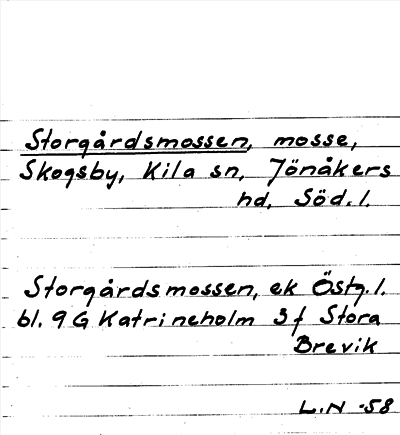 Storgårdsmossen, mosse,
Skogsby, Kila sn, Jönåkers
hd, Söd. l.
Storgårdsmossen, ek Östg. l.
bl. 9 G Katrineholm 3 f Stora
Brevik
L.N -58